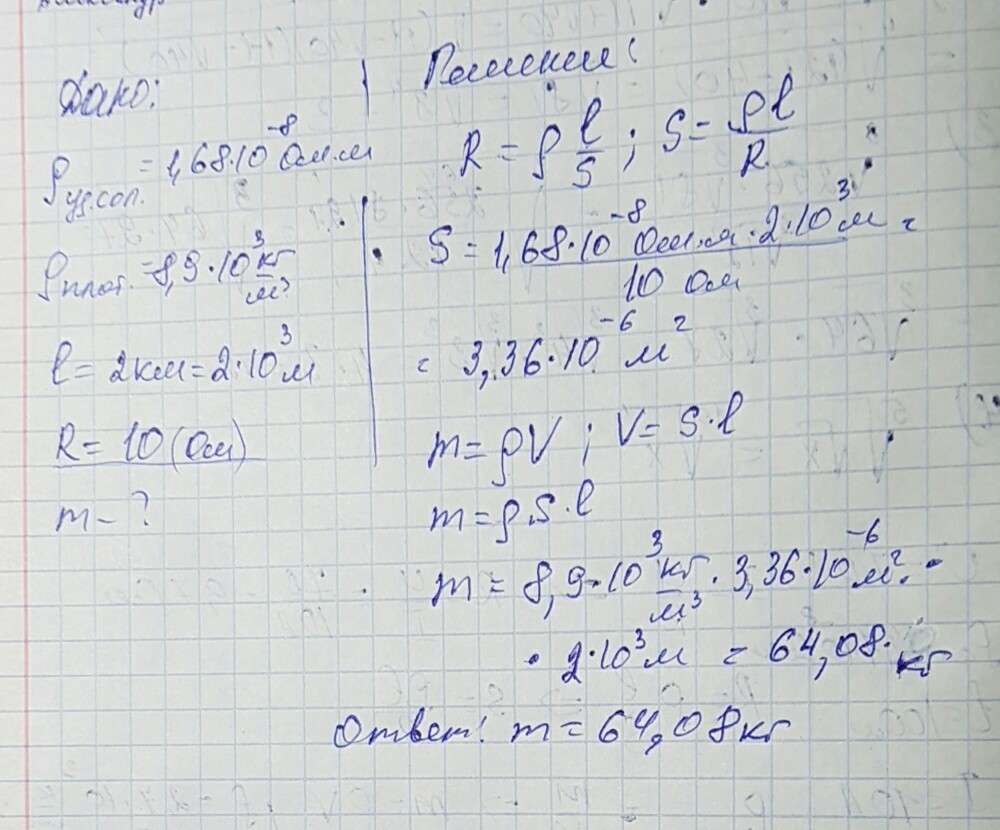 Дано:
ρуд.соп. = 1,68·10⁻⁸ Ом·м
ρплот. = 8,9·10³ кг/м³
l = 2км = 2·10³ м
R = 10 (Ом)
m - ?
Решение:
R = ρ l/S ; S = ρl/R
S = 1,68·10⁻⁸ Ом·м·2·10³ м / 10 Ом =
= 3,36·10⁻⁶ м²
m = ρV ; V = S·l
m = ρ·S·l
m = 8,9·10³ кг/м³ · 3,36·10⁻⁶ м² ·
· 2·10³ м = 64,08 кг
Ответ: m = 64,08 кг